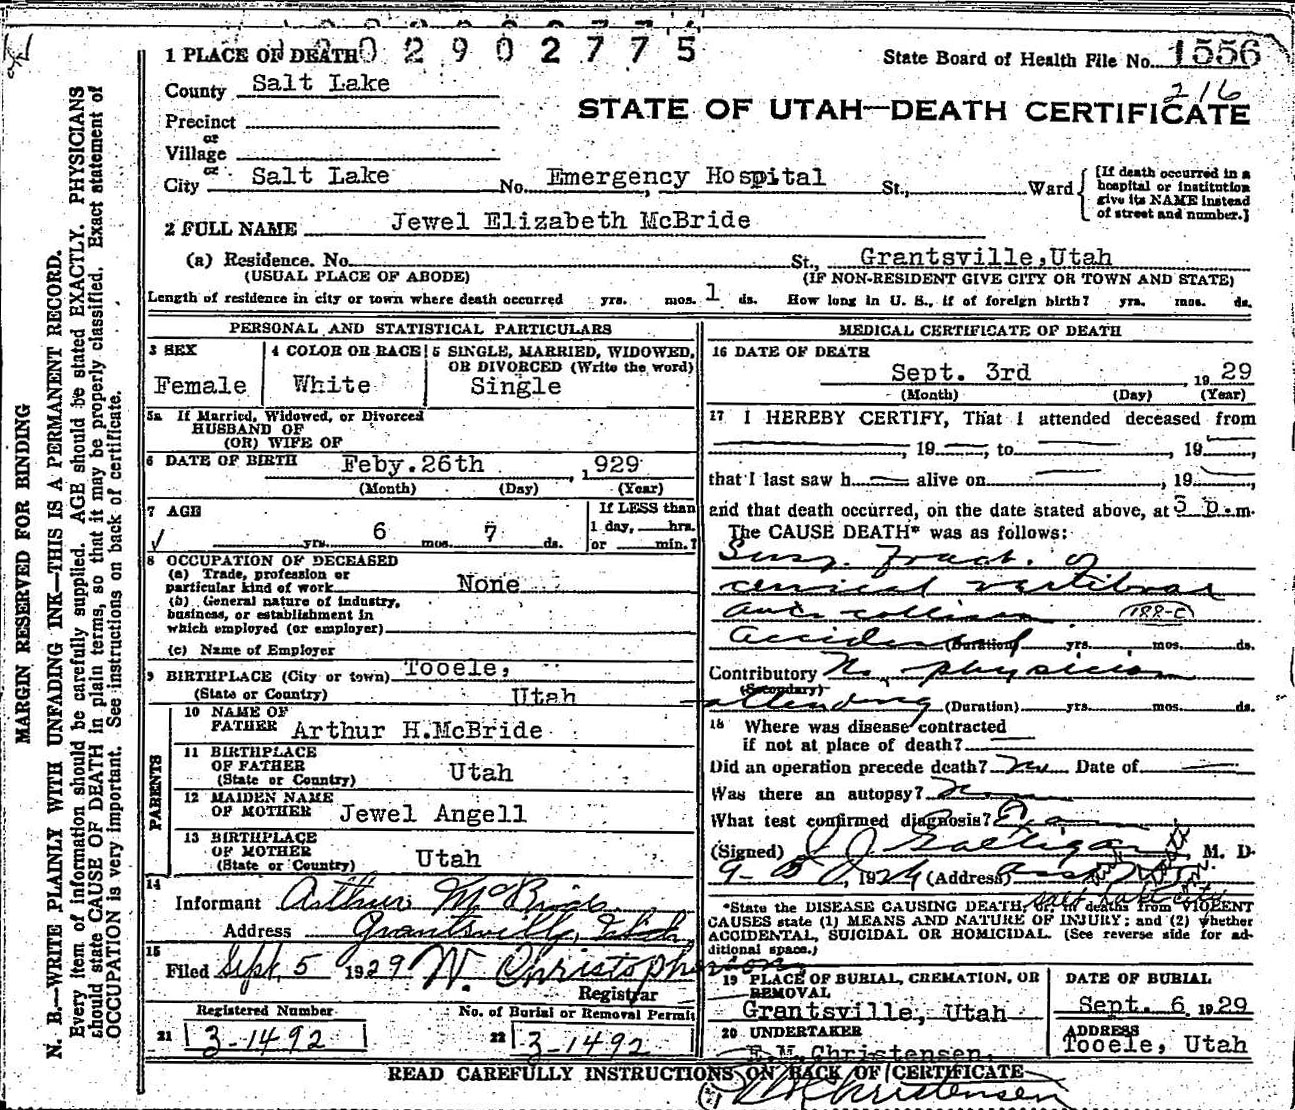 1 PLACE OF DEATH 0 2 9 0 2 7 7 5
State Board of Health File No. 1556
216
County Salt Lake
STATE OF UTAH—DEATH CERTIFICATE
Precinct
or
Village
or
City Salt Lake No. Emergency Hospital St., Ward
[If death occurred in a hospital or institution give its NAME instead of street and number.]
2 FULL NAME Jewel Elizabeth McBride
(a) Residence. No. St., Grantsville, Utah
(USUAL PLACE OF ABODE) (IF NON-RESIDENT GIVE CITY OR TOWN AND STATE)
Length of residence in city or town where death occurred yrs. mos. 1 ds. How long in U. S., if of foreign birth? yrs. mos. ds.
PERSONAL AND STATISTICAL PARTICULARS
3 SEX
Female
4 COLOR OR RACE
White
5 SINGLE, MARRIED, WIDOWED,
OR DIVORCED (Write the word)
Single
5a If Married, Widowed, or Divorced
HUSBAND OF
(OR) WIFE OF
6 DATE OF BIRTH Feby.26th ,1929
(Month) (Day) (Year)
7 AGE
yrs. 6 mos. 7 ds.
If LESS than
1 day, hrs.
or min.?
8 OCCUPATION OF DECEASED
(a) Trade, profession or
particular kind of work None
(b) General nature of industry,
business, or establishment in
which employed (or employer)
(c) Name of Employer
9 BIRTHPLACE (City or town) Tooele,
(State or Country) Utah
PARENTS
10 NAME OF
FATHER Arthur H.McBride
11 BIRTHPLACE
OF FATHER
(State or Country) Utah
12 MAIDEN NAME
OF MOTHER Jewel Angell
13 BIRTHPLACE
OF MOTHER
(State or Country) Utah
14
Informant Arthur McBride
Address Grantsville, Utah
15
Filed Sept 5 1929 W. Christopherson
Registrar
Registered Number
21 3-1492
No. of Burial or Removal Permit
22 3-1492
MEDICAL CERTIFICATE OF DEATH
16 DATE OF DEATH
Sept. 3rd , 1929
(Month) (Day) (Year)
17 I HEREBY CERTIFY, That I attended deceased from
, 19 ; to , 19 ,
that I last saw h alive on , 19 ,
and that death occurred, on the date stated above, at 3 p.m.
The CAUSE DEATH* was as follows:
Fract. of
cervical vertibrae
auto collision 188-C
Accidental (Duration) yrs. mos. ds.
Contributory No physician
(Secondary)
attending (Duration) yrs. mos. ds.
18 Where was disease contracted
if not at place of death?
Did an operation precede death? No Date of
Was there an autopsy?
What test confirmed diagnosis?
(Signed) J J Galligan, M. D.
9- 5, 1929 (Address)
Salt Lake City
*State the DISEASE CAUSING DEATH, or, in deaths from VIOLENT
CAUSES state (1) MEANS AND NATURE OF INJURY; and (2) whether
ACCIDENTAL, SUICIDAL OR HOMICIDAL. (See reverse side for ad-
ditional space.)
19 PLACE OF BURIAL, CREMATION, OR
REMOVAL
Grantsville, Utah
DATE OF BURIAL
Sept. 6 1929
20 UNDERTAKER
E.M.Christensen,
ADDRESS
Tooele, Utah
READ CAREFULLY INSTRUCTIONS ON BACK OF CERTIFICATE
Christensen
MARGIN RESERVED FOR BINDING
N. B.—WRITE PLAINLY WITH UNFADING INK—THIS IS A PERMANENT RECORD.
Every item of information should be carefully supplied. AGE should be stated EXACTLY. PHYSICIANS
should state CAUSE OF DEATH in plain terms, so that it may be properly classified. Exact statement of
OCCUPATION is very important. See instructions on back of certificate.